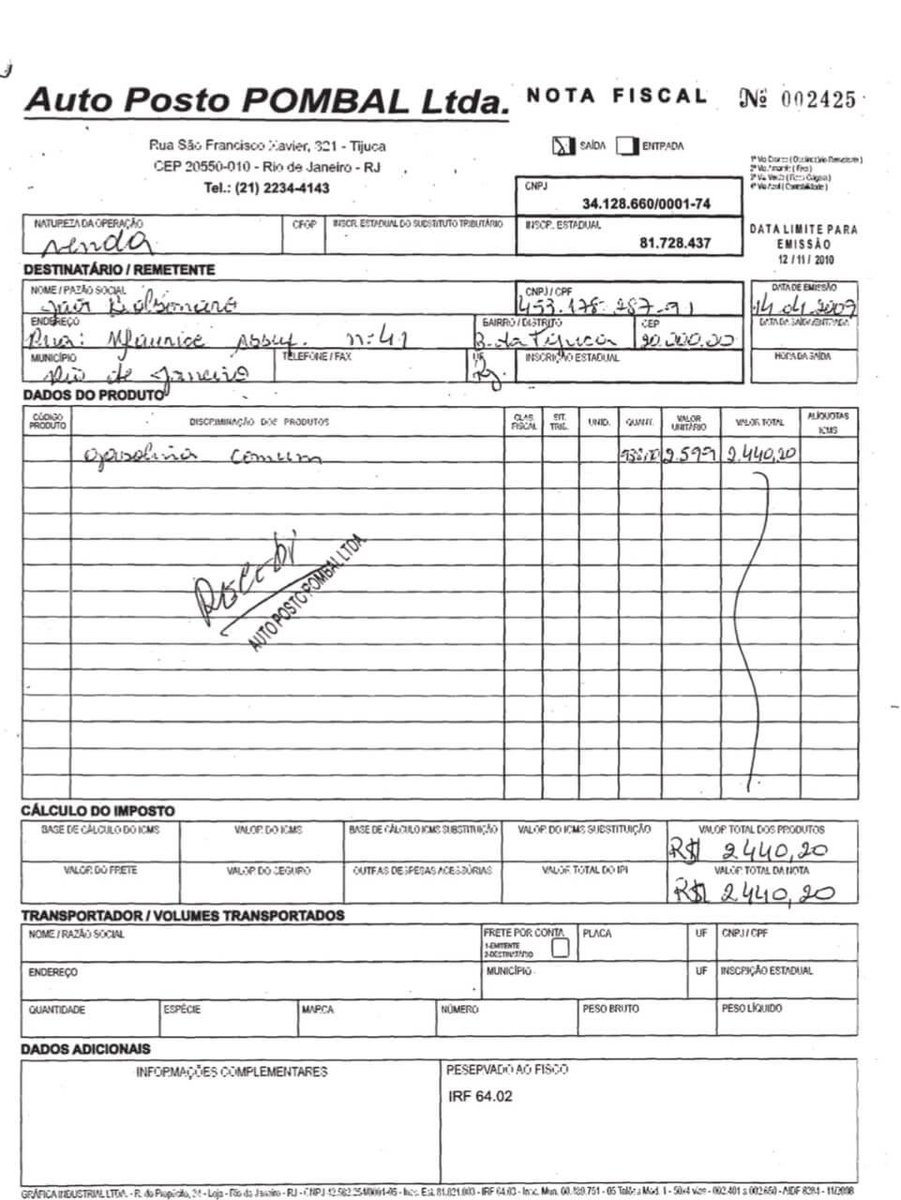 Auto Posto POMBAL Ltda. NOTA FISCAL Nº 002425
Rua São Francisco Xavier, 321 - Tijuca
CEP 20550-010 - Rio de Janeiro - RJ
Tel.: (21) 2234-4143
X SAÍDA ENTRADA
CNPJ
34.128.660/0001-74
NATUREZA DA OPERAÇÃO CFOP INSCR. ESTADUAL DO SUBSTITUTO TRIBUTÁRIO INSCR. ESTADUAL
venda 81.728.437
DATA LIMITE PARA
EMISSÃO
12/11/2010
DESTINATÁRIO / REMETENTE
NOME / RAZÃO SOCIAL CNPJ / CPF DATA DE EMISSÃO
Jair Bolsonaro 453.178.287-91 14 04 2009
ENDEREÇO BAIRRO / DISTRITO CEP DATA DA SAÍDA/ENTRADA
Rua: Maurice Assuf. nº 41 B. da Tijuca 20.000.00
MUNICÍPIO TELEFONE / FAX UF INSCRIÇÃO ESTADUAL HORA DA SAÍDA
Rio de Janeiro Rj.
DADOS DO PRODUTO
CÓDIGO PRODUTO DISCRIMINAÇÃO DOS PRODUTOS CLAS. FISCAL SIT. TRIB. UNID. QUANT. VALOR UNITÁRIO VALOR TOTAL ALÍQUOTAS ICMS
gasolina comum 2.599 2.440,20
Recebi
AUTO POSTO POMBAL LTDA
CÁLCULO DO IMPOSTO
BASE DE CÁLCULO DO ICMS VALOR DO ICMS BASE DE CÁLCULO ICMS SUBSTITUIÇÃO VALOR DO ICMS SUBSTITUIÇÃO VALOR TOTAL DOS PRODUTOS
R$ 2440,20
VALOR DO FRETE VALOR DO SEGURO OUTRAS DESPESAS ACESSÓRIAS VALOR TOTAL DO IPI VALOR TOTAL DA NOTA
R$ 2.440,20
TRANSPORTADOR / VOLUMES TRANSPORTADOS
NOME / RAZÃO SOCIAL FRETE POR CONTA PLACA UF CNPJ / CPF
1-EMITENTE
2-DESTINATÁRIO
ENDEREÇO MUNICÍPIO UF INSCRIÇÃO ESTADUAL
QUANTIDADE ESPÉCIE MARCA NÚMERO PESO BRUTO PESO LÍQUIDO
DADOS ADICIONAIS
INFORMAÇÕES COMPLEMENTARES RESERVADO AO FISCO
IRF 64.02
GRÁFICA INDUSTRIAL LTDA. - R. do Propósito, - Loja - Rio de Janeiro - RJ - CNPJ